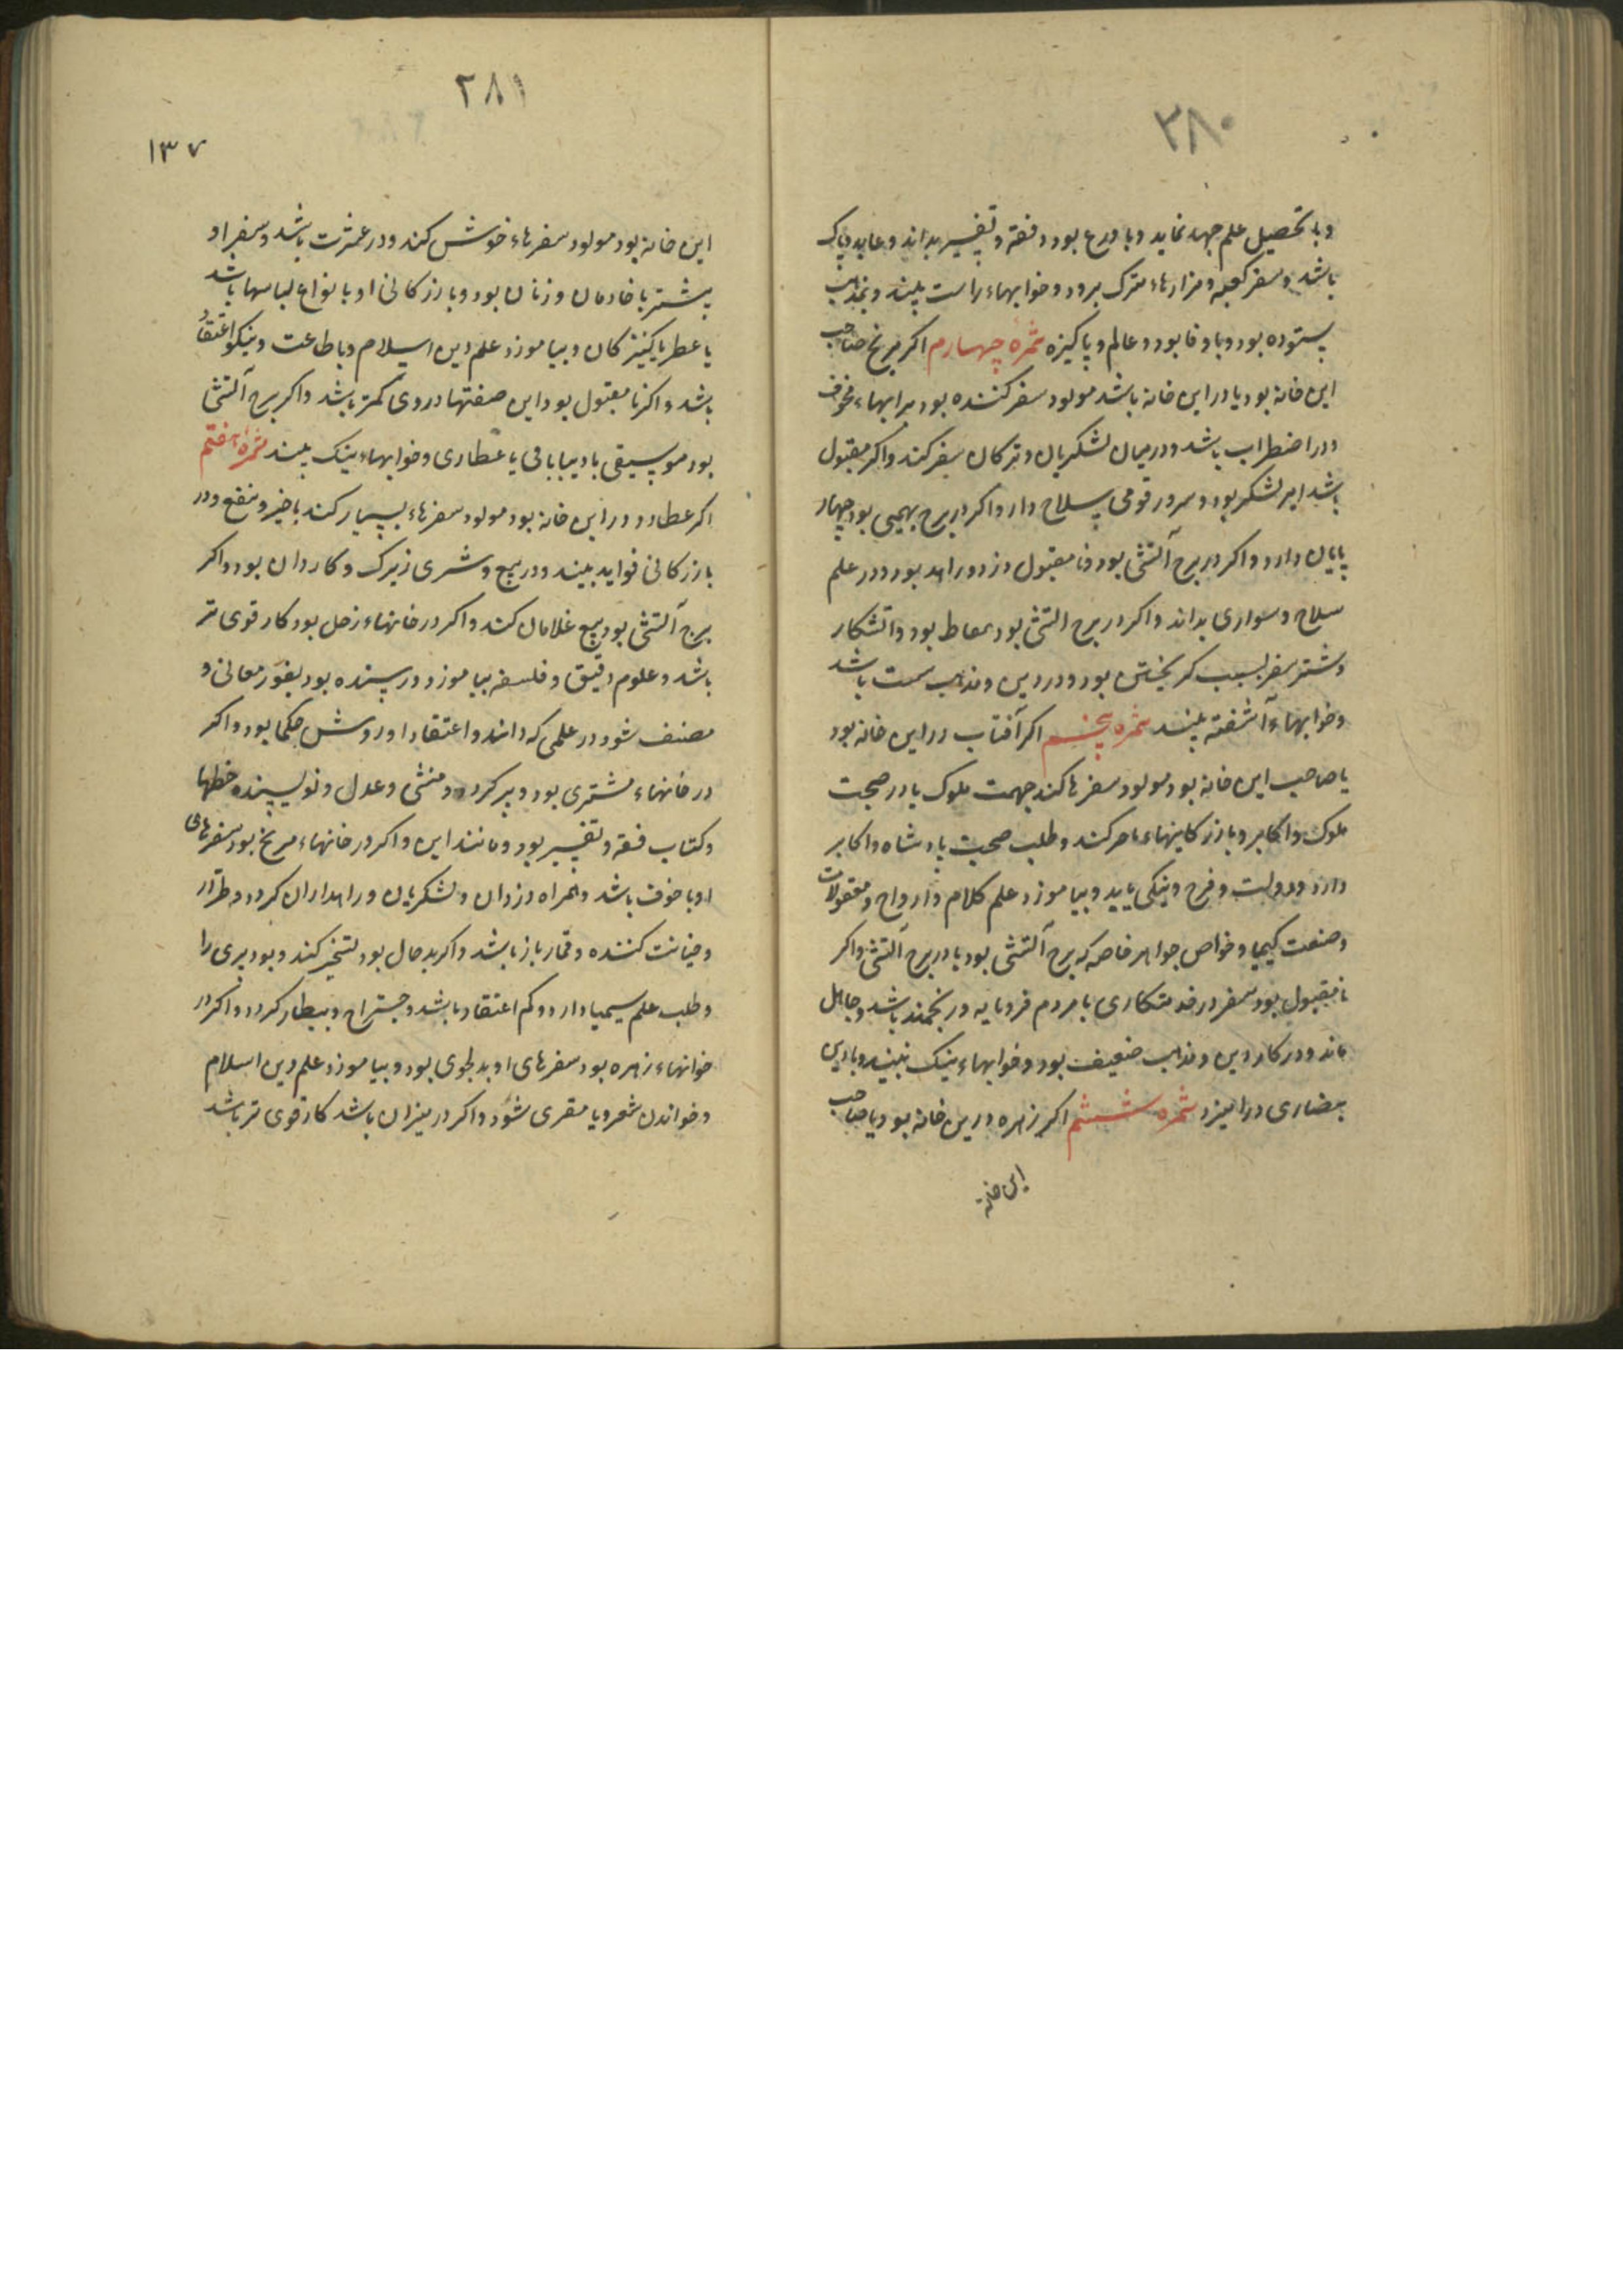 ۲۸۰
وبا تحصیل علم جهد نماید وبا ورع بود وفقه وتفسیر بداند وعابد وپاک
باشد وسفر کعبه ومزارهاء متبرک برود وخوابهاء راست بیند وبمذهب
ستوده بود وبا وفا بود وعالم وپاکیزه ثمرهٔ چهارم اکر مریخ صاحب
این خانه بود یا در این خانه باشد مولود سفر کننده بود براههاء مخوف
ودر اضطراب باشد ودر میان لشکریان وترکان سفر کند واکر مقبول
باشد امیر لشکر بود وسرور قومی سلاح دار واکر در برج بهیمی بود چهار
پایان دارد واکر در برج آتشی بود ونامقبول دزد وراهد بود ودر علم
سلاح وسواری بداند واکر در برج اتشی بود بیطار بود واتشکار
وبیشتر سفر بسبب کریختن بود ودر دین ومذهب سست باشد
وخوابهاء آشفته بیند ثمره پنجم اکر آفتاب در این خانه بود
یا صاحب این خانه بود مولود سفرها کند جهت ملوک یا در صحبت
ملوک واکابر وبازرکانیهاء فاخر کند وطلب صحبت پادشاه واکابر
دارد ودولت وفرح ونیکی یابد وبیاموزد علم کلام وارواح ومعقولات
وصنعت کیمیا وخواص جواهر خاصه که برج آتشی بود یا در برج آتشی واکر
نامقبول بود سفر در خدمتکاری با مردم فرومایه ورنجمند باشد وجاهل
ماند ودر کار دین ومذهب ضعیف بود وخوابهاء نیک نبیند وبا دین
نصاری درامیزد ثمره ششم اکر زهره درین خانه بود یا صاحب
این خانه
۲۸۱
۱۳۷
این خانه بود مولود سفرهاء خوش کند ودر عشرت باشد وسفر او
بیشتر با خادمان وزنان بود وبازرکانی او با نواع لباسها باشد
یا عطر یا کنیزکان وبیاموزد علم دین اسلام وبا طاعت ونیکو اعتقاد
باشد واکر نامقبول بود این صفتها در وی کمتر باشد واکر برج آتشی
بود موسیقی یا دیبا بافی یا عطاری وخوابهاء نیک بیند ثمرهٔ هفتم
اکر عطارد در این خانه بود مولود سفرهاء بسیار کند با خیر ونفع ودر
بازرکانی فواید بیند ودر بیع وشری زیرک وکاردان بود واکر
برج آتشی بود بیع غلامان کند واکر در خانهاء زحل بود کار قوی تر
باشد وعلوم دقیق وفلسفه بیاموزد ورسنده بود بغور معانی و
مصنف شود در علمی که داند واعتقاد او روش حکما بود واکر
در خانهاء مشتری بود دبیر کردد ومنشی وعدل ونویسنده خطها
وکتاب فقه وتفسیر بود ومانند این واکر در خانهاء مریخ بود سفرهای
او با خوف باشد وهمراه دزدان ولشکریان وراهداران کردد وطرّار
وخیانت کننده وقمارباز باشد واکر بد حال بود تسخیر کند دیو وپری را
وطلب علم سیمیا دارد وکم اعتقاد باشد وجراح وبیطار کردد واکر در
خوانهاء زهره بود سفرهای او بدلجوی بود وبیاموزد علم دین اسلام
وخواندن شعر ویا مقری شود واکر در میزان باشد کار قوی تر باشد